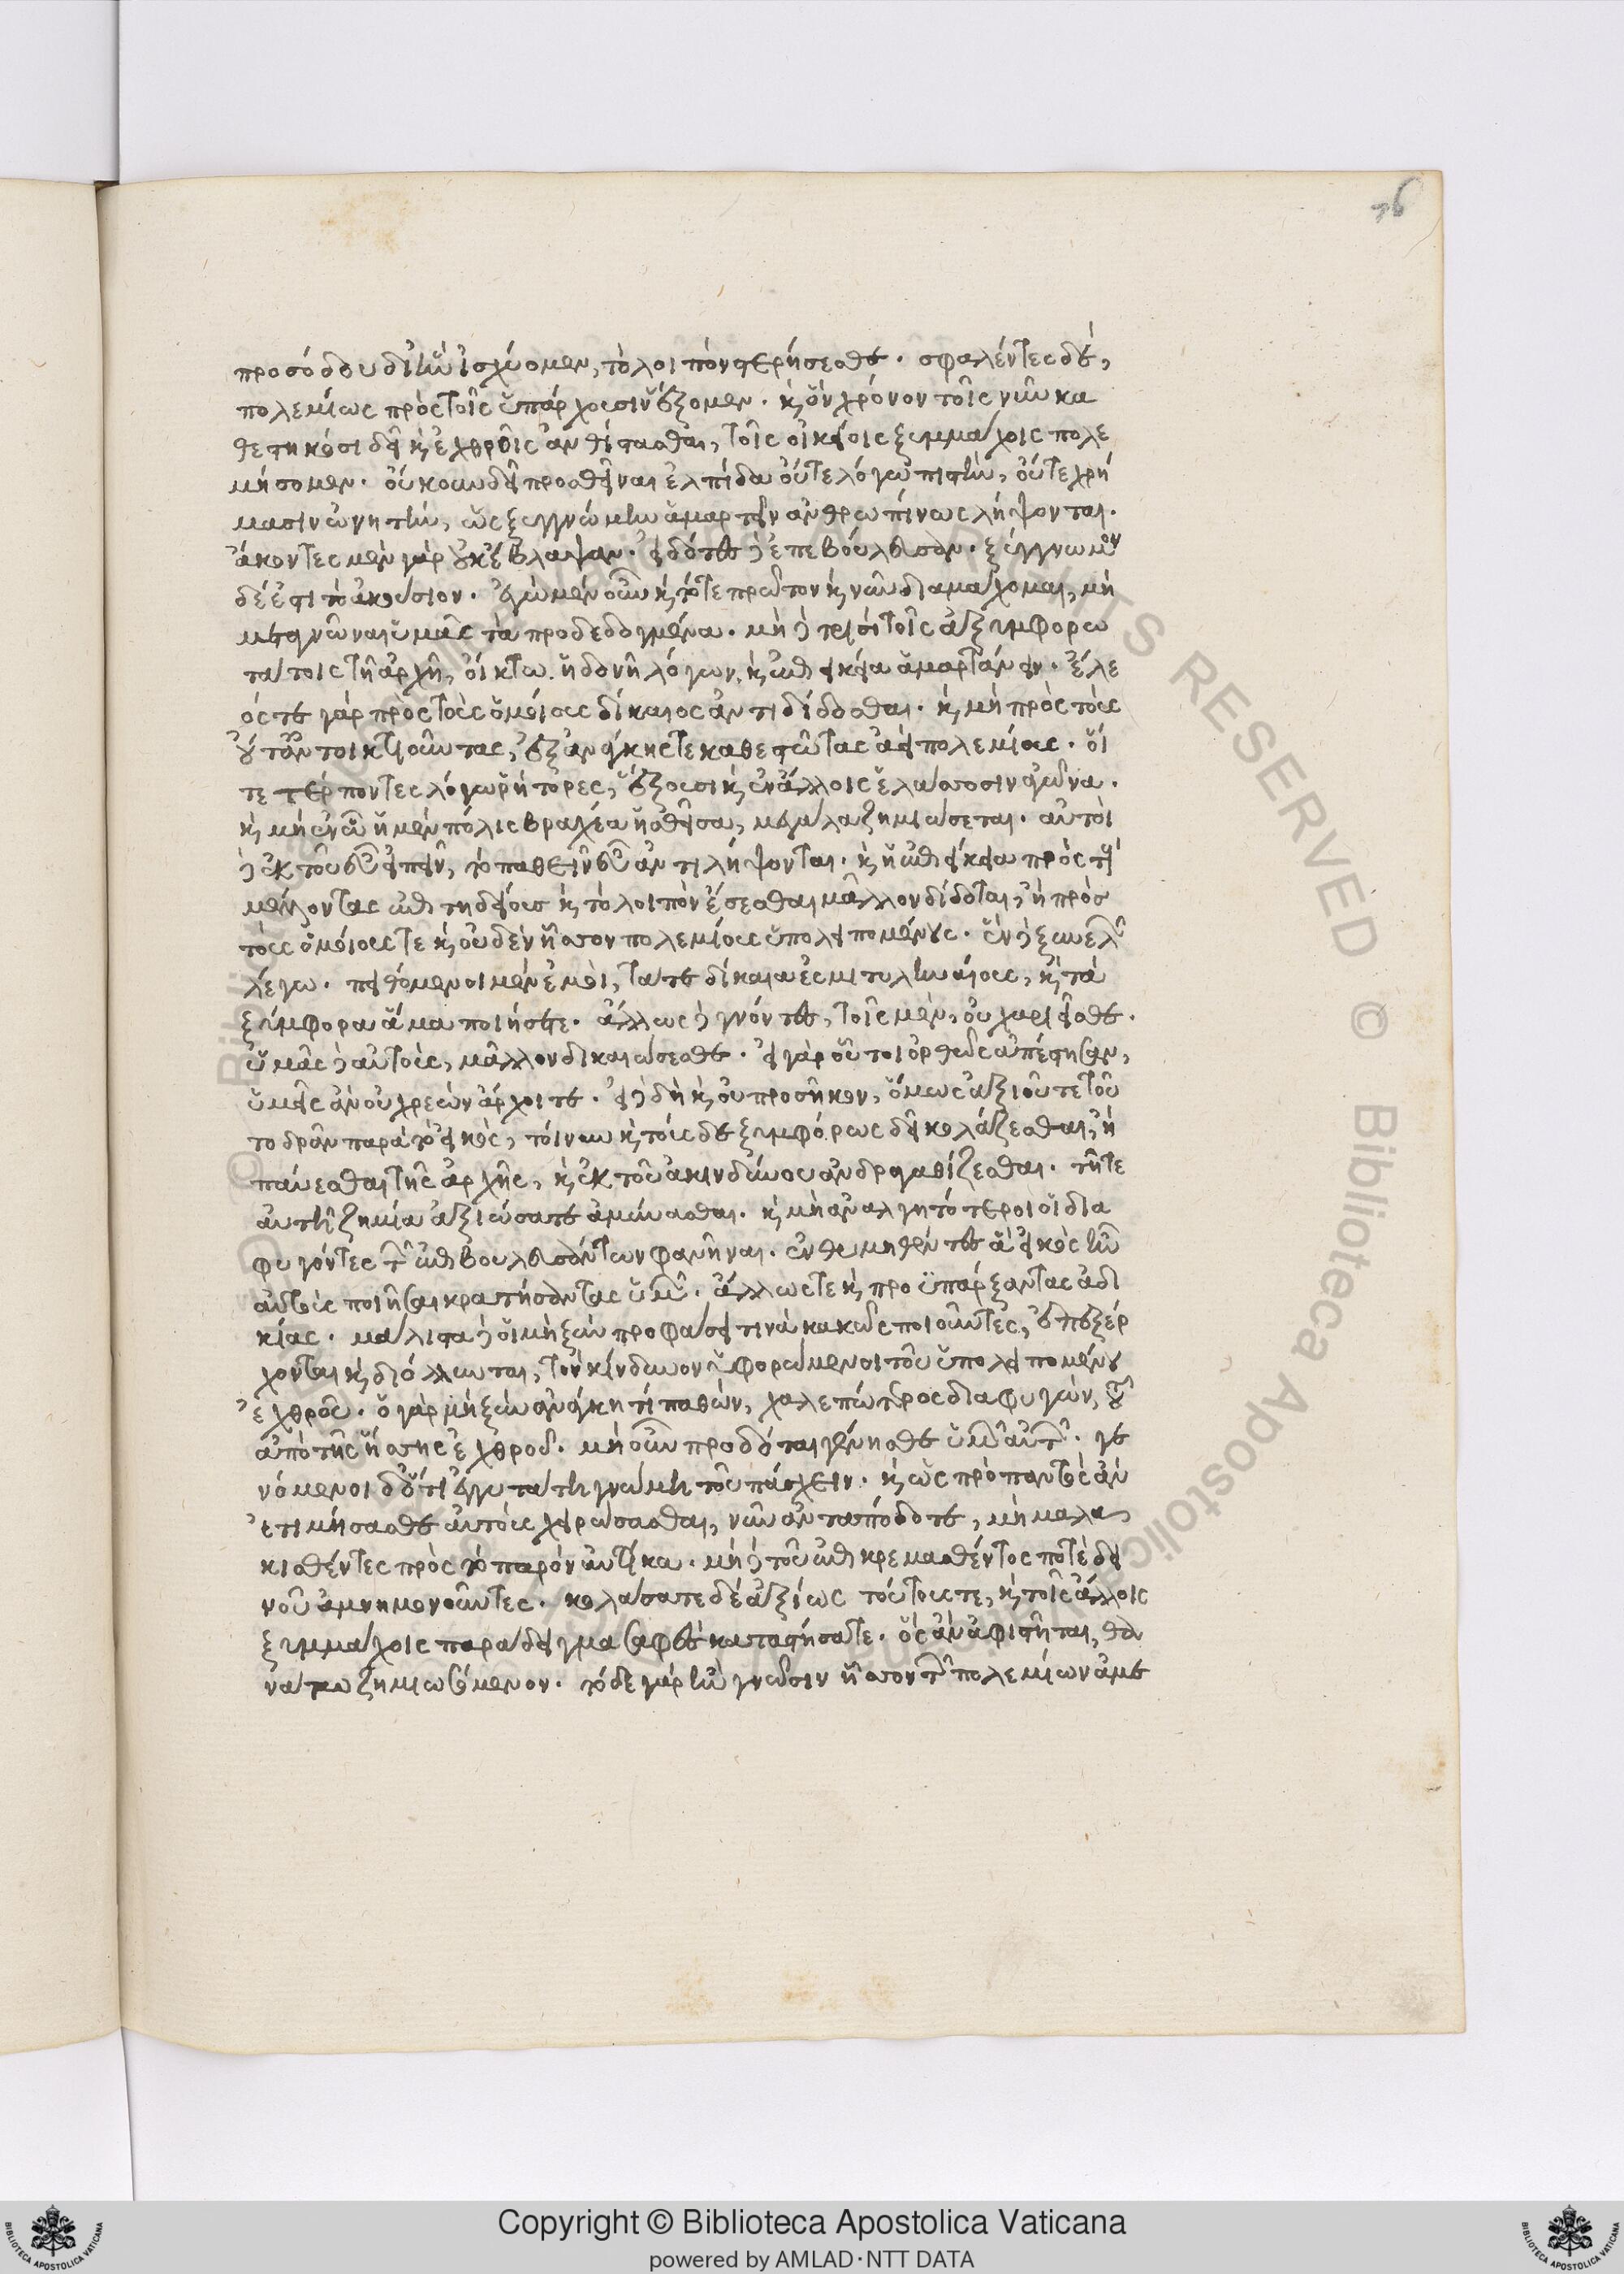 76
προσόδου δι' ἣν ἰσχύομεν, τὸ λοιπὸν στερήσεσθε. σφαλέντες δὲ,
πολεμίους πρὸς τοῖς ὑπάρχουσιν ἕξομεν. καὶ ὃν χρόνον τοῖς νῦν κα
θεστηκόσι δεῖ καὶ ἐχθροῖς ἀνθίστασθαι, τοῖς οἰκείοις ξυμμάχοις πολε
μήσομεν. οὔκουν δεῖ προσθεῖναι ἐλπίδα οὔτε λόγω πιστὴν, οὔτε χρή
μασιν ὠνητὴν, ὡς ξυγγνώμην ἁμαρτεῖν ἀνθρωπίνως λήψονται.
ἄκοντες μὲν γὰρ οὐκ ἔβλαψαν. εἰδότες δὲ ἐπεβούλευσαν. ξύγγνωμον
δέ ἐστι τὸ ἀκούσιον. ἐγὼ μὲν οὖν καὶ τότε πρῶτον καὶ νῦν διαμάχομαι, μὴ
μεταγνῶναι ὑμᾶς τὰ προδεδογμένα. μὴ δὲ τρισὶ τοῖς ἀξυμφορω
τάτοις τῆ ἀρχῆ, οἴκτω. ἡδονῆ λόγων, καὶ ἐπιεικεία ἁμαρτάνειν. ἔλε
ός τε γὰρ πρὸς τοὺς ὁμοίους δίκαιος ἀντιδίδοσθαι. καὶ μὴ πρὸς τοὺς
οὔτ' ἀντοικτιοῦντας, ἐξ ἀνάγκης τε καθεστῶτας ἀεὶ πολεμίους. οἵ
τε τέρποντες λόγω ῥήτορες, ἕξουσι καὶ ἐν ἄλλοις ἐλάσσοσιν ἀγῶνα.
καὶ μὴ ἐν ὧ ἡ μὲν πόλις βραχέα ἡσθεῖσα, μεγάλα ζημιώσεται. αὐτοὶ
δὲ ἐκ τοῦ εὖ εἰπεῖν, τὸ παθεῖν εὖ ἀντιλήψονται. καὶ ἡ ἐπιείκεια πρὸς τοὺς
μέλλοντας ἐπιτηδείους καὶ τὸ λοιπὸν ἔσεσθαι μᾶλλον δίδοται, ἢ πρὸς
τοὺς ὁμοίους τε καὶ οὐδὲν ἧσσον πολεμίους ὑπολειπομένους. ἓν δὲ ξυνελὼν
λέγω. πειθόμενοι μὲν ἐμοὶ, τά τε δίκαια ἐς μιτυληναίους, καὶ τὰ
ξύμφορα ἅμα ποιήσετε. ἄλλως δὲ γνόντες, τοῖς μὲν, οὐ χαριεῖσθε.
ὑμᾶς δὲ αὐτοὺς, μᾶλλον δικαιώσεσθε. εἰ γὰρ οὗτοι ὀρθῶς ἀπέστησαν,
ὑμεῖς ἂν οὐ χρεὼν ἄρχοιτε. εἰ δὲ δὴ καὶ οὐ προσῆκον, ὅμως ἀξιοῦτε τοῦ
το δρᾶν παρὰ τὸ εἰκὸς, τοίνυν καὶ τούσδε ξυμφόρως δεῖ κολάζεσθαι, ἢ
παύεσθαι τῆς ἀρχῆς, καὶ ἐκ τοῦ ἀκινδύνου ἀνδραγαθίζεσθαι. τῆ τε
αὐτῆ ζημία ἀξιώσατε ἀμύνασθαι. καὶ μὴ ἀναλγητότεροι οἱ δια
φυγόντες τῶν ἐπιβουλευσάντων φανῆναι. ἐνθυμηθέντες ἃ εἰκὸς ἦν
αὐτοὺς ποιῆσαι κρατήσαντας ὑμῶν. ἄλλως τε καὶ προϋπάρξαντας ἀδι
κίας. μάλιστα δὲ οἱ μὴ ξὺν προφάσει τινὰ κακῶς ποιοῦντες, ἐπεξέρ
χονται καὶ διόλλυνται, τὸν κίνδυνον ὑφορώμενοι τοῦ ὑπολειπομένου
ἐχθροῦ. ὁ γὰρ μὴ ξὺν ἀνάγκη τὶ παθὼν, χαλεπώτερος διαφυγὼν, τοῦ
ἀπὸ τῆς ἴσης ἐχθροῦ. μὴ οὖν προδόται γένησθε ὑμῶν αὐτῶν. γε
νόμενοι δ' ὅτι ἐγγύτατη γνώμη τοῦ πάσχειν. καὶ ὡς πρὸ παντὸς ἂν
ἐτιμήσασθε αὐτοὺς χειρώσασθαι, νῦν ἀνταπόδοτε, μὴ μαλα
κισθέντες πρὸς τὸ παρὸν αὐτίκα. μὴ δὲ τοῦ ἐπικρεμασθέντος ποτὲ δει
νοῦ ἀμνημονοῦντες. κολάσατε δὲ ἀξίως τούτους τε, καὶ τοῖς ἄλλοις
ξυμμάχοις παράδειγμα σαφὲς καταστήσατε. ὃς ἂν ἀφιστῆται, θα
νάτω ζημιωσόμενον. τόδε γὰρ ἢν γνῶσιν ἧσσον τῶν πολεμίων ἀμε
Copyright © Biblioteca Apostolica Vaticana
powered by AMLAD·NTT DATA